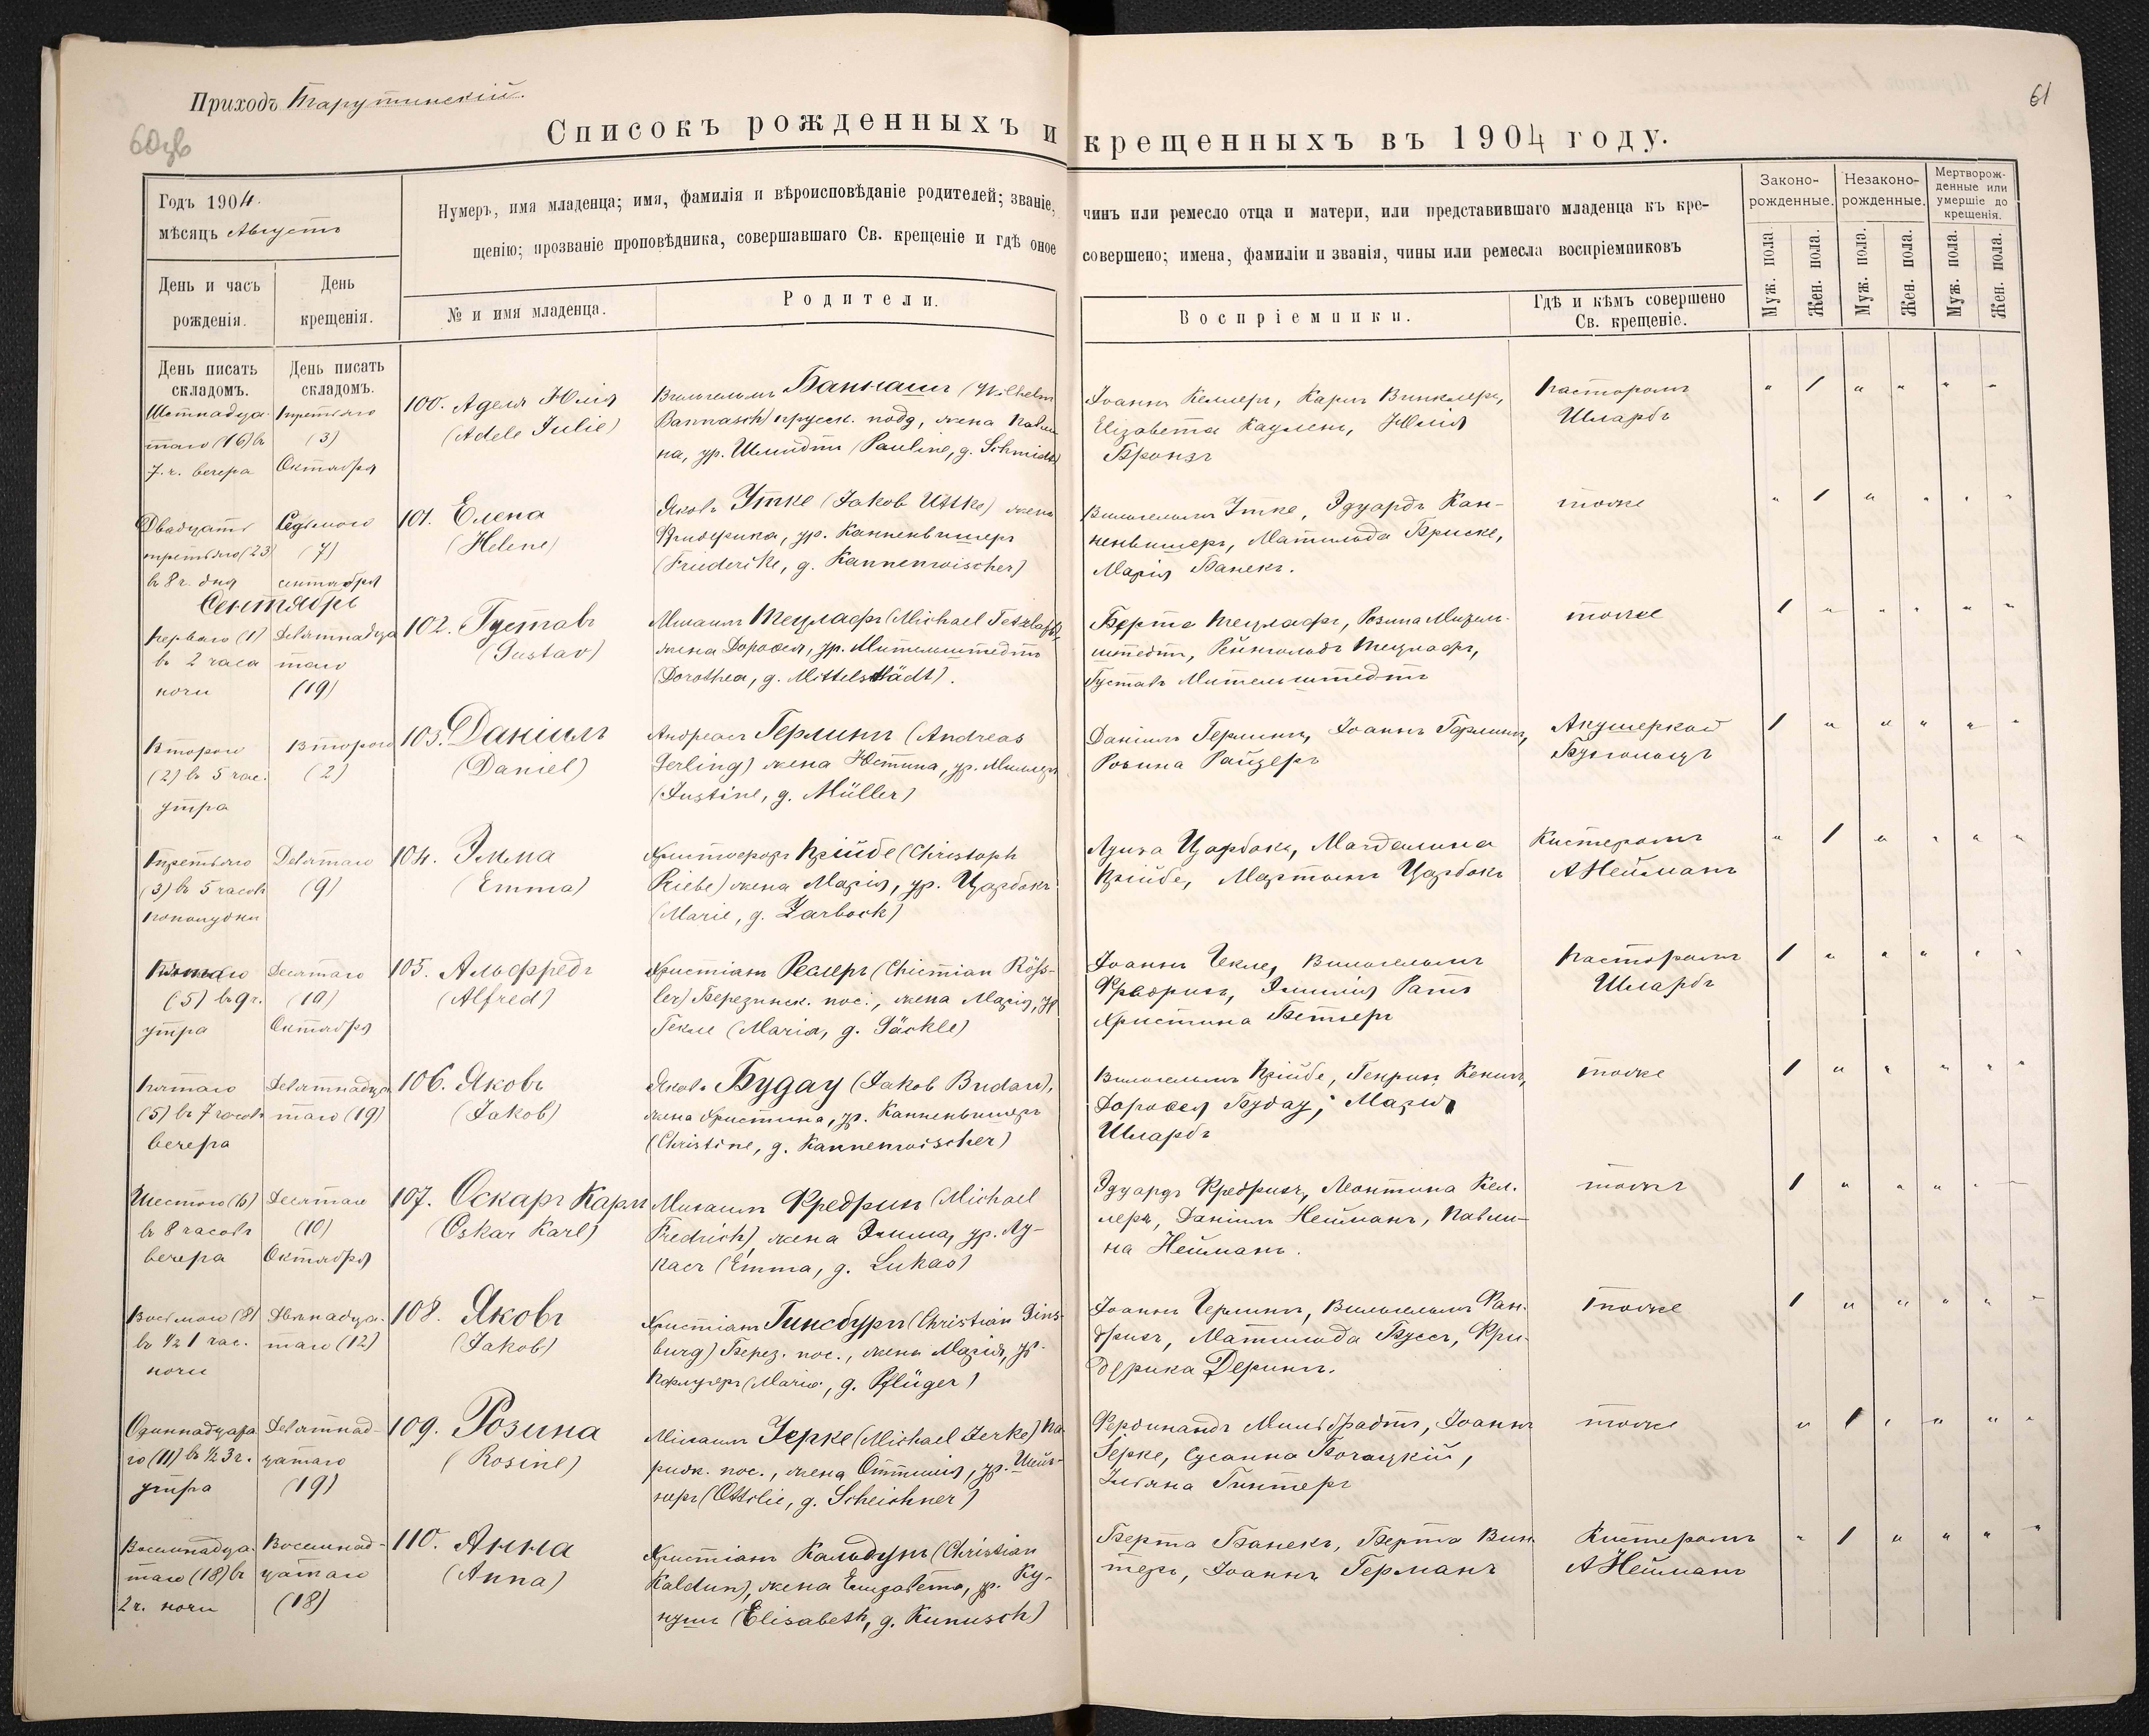 Приходъ Тарутинскій.
60зв
61
Списокъ рожденныхъ и крещенныхъ въ 1904 году.
Годъ 1904.
мѣсяцъ Августъ
Нумеръ, имя младенца; имя, фамилія и вѣроисповѣданіе родителей; званіе, чинъ или ремесло отца и матери, или представившаго младенца къ кре-
щенію; прозваніе проповѣдника, совершавшаго Св. крещеніе и гдѣ оное совершено; имена, фамиліи и званія, чины или ремесла воспріемниковъ
Законо-
рожденные.
Незаконо-
рожденные.
Мертворож-
денные или
умершіе до
крещенія.
Муж. пола.
Жен. пола.
Муж. пола.
Жен. пола.
Муж. пола.
Жен. пола.
День и часъ
рожденія.
День
крещенія.
№ и имя младенца.
Родители.
Воспріемники.
Гдѣ и кѣмъ совершено
Св. крещеніе.
День писать
складомъ.
День писать
складомъ.
Шестнадца-
таго (16) въ
7. ч. вечера
Третьяго
(3)
Октября
100. Аделя Юлія
(Adele Julie)
Вильгельмъ Баннашъ (Wilhelm
Bannasch) прусск. подд., жена Павли
на, ур. Шмидтъ (Pauline, g. Schmidt)
Іоаннъ Келлеръ, Карлъ Винклеръ,
Елизавета Каулень, Юлія
Бронзъ
Пасторомъ
Шлардъ
" 1 " " " "
Двадцать
третьяго (23)
въ 8 ч. дня
Седьмого
(7)
сентября
101. Елена
(Helene)
Яковъ Утке (Jakob Uttke) жена
Фридерика, ур. Канненвишеръ
(Friederike, g. Kannenwischer)
Вильгельмъ Утке, Эдуардъ Кан-
ненвишеръ, Матильда Бриске,
Марія Банекъ.
тоже
" 1 " " " "
Сентябрь
Перваго (1)
въ 2 часа
ночи
Девятнадца
таго
(19)
102. Густавъ
(Gustav)
Михаилъ Тецлафъ (Michael Tetzlaff),
жена Доротея, ур. Мительштедтъ
(Dorothea, g. Mittelstädt).
Берта Тецлафъ, Розина Мител-
штедтъ, Рейнгольдъ Тецлафъ,
Густавъ Мительштедтъ
тоже
1 " " " " "
Второго
(2) въ 5 час.
утра
Второго
(2)
103. Даніилъ
(Daniel)
Андреасъ Герлингъ (Andreas
Gerling) жена Юстина, ур. Миллеръ
(Justine, g. Müller)
Даніилъ Герлингъ, Іоаннъ Герлингъ,
Розина Райцеръ
Акушеркой
Бухгольцъ
1 " " " " "
Третьяго
(3) въ 5 часовъ
пополудни
Девятаго
(9)
104. Эмма
(Emma)
Христофоръ Прійбе (Christoph
Priebe) жена Марія, ур. Царбокъ
(Marie, g. Zarbock)
Луиза Царбокъ, Магдалина
Прійбе, Мартынъ Царбокъ
Кистеромъ
А Нейманъ
" 1 " " " "
(5) въ 9 ч.
утра
Десятаго
(10)
Октября
105. Альфредъ
(Alfred)
Христіанъ Реслеръ (Christian Röss-
ler) Березинск. пос., жена Марія, ур
Гекле (Maria, g. Gäckle)
Іоаннъ Гекле, Вильгельмъ
Фредрихъ, Эмилія Ратъ
Христина Бетхеръ
Пасторомъ
Шлардъ
1 " " " " "
Пятаго
(5) въ 7 часовъ
вечера
Девятнадца
таго (19)
106. Яковъ
(Jakob)
Яковъ Будау (Jakob Budau),
жена Христина, ур. Канненвишеръ
(Christine, g. Kannenwischer)
Вильгельмъ Прійбе, Генрихъ
Доротея Будау, Марія
Шлардъ
тоже
1 " " " " "
Шестого (6)
въ 8 часовъ
вечера
Десятаго
(10)
Октября
107. Оскаръ Карлъ
(Oskar Karl)
Михаилъ Фредрихъ (Michael
Fredrich) жена Эмма, ур. Лу-
касъ (Emma, g. Lukas)
Эдуардъ Фредрихъ, Леонтина Кел-
леръ, Даніилъ Нейманъ, Павли-
на Нейманъ.
тоже
1 " " " " "
Восьмого (8)
въ ½ 1 час.
ночи
Двѣнадца-
таго (12)
108. Яковъ
(Jakob)
Христіанъ Гинсбургъ (Christian Gins-
burg) Берез. пос., жена Марія, ур.
Пфлугеръ (Maria, g. Pflüger)
Іоаннъ Герлингъ, Вильгельмъ
Матильда Буссъ, Фри-
дерика Дерингъ.
тоже
1 " " " " "
Одиннадцата
го (11) въ ½ 3 ч.
утра
Девятнад-
цатаго
(19)
109. Розина
(Rosine)
Михаилъ Зерке (Michael Zerke) Па
рижс. пос., жена Оттилія, ур. Шейх-
неръ (Ottilie, g. Scheichner)
Фердинандъ Мильбрадтъ, Іоаннъ
Зерке, Сусанна
Юліана Гинтеръ
тоже
" 1 " " " "
Восемнадца-
таго (18) въ
2 ч. ночи
Восемнад-
цатаго
(18)
110. Анна
(Anna)
Христіанъ Кальдунъ (Christian
Kaldun), жена Елизавета, ур. Ку-
нушъ (Elisabeth, g. Kunusch)
Берта Банекъ, Берта Вин
теръ, Іоаннъ Германъ
Кистеромъ
А Нейманъ
" 1 " " " "